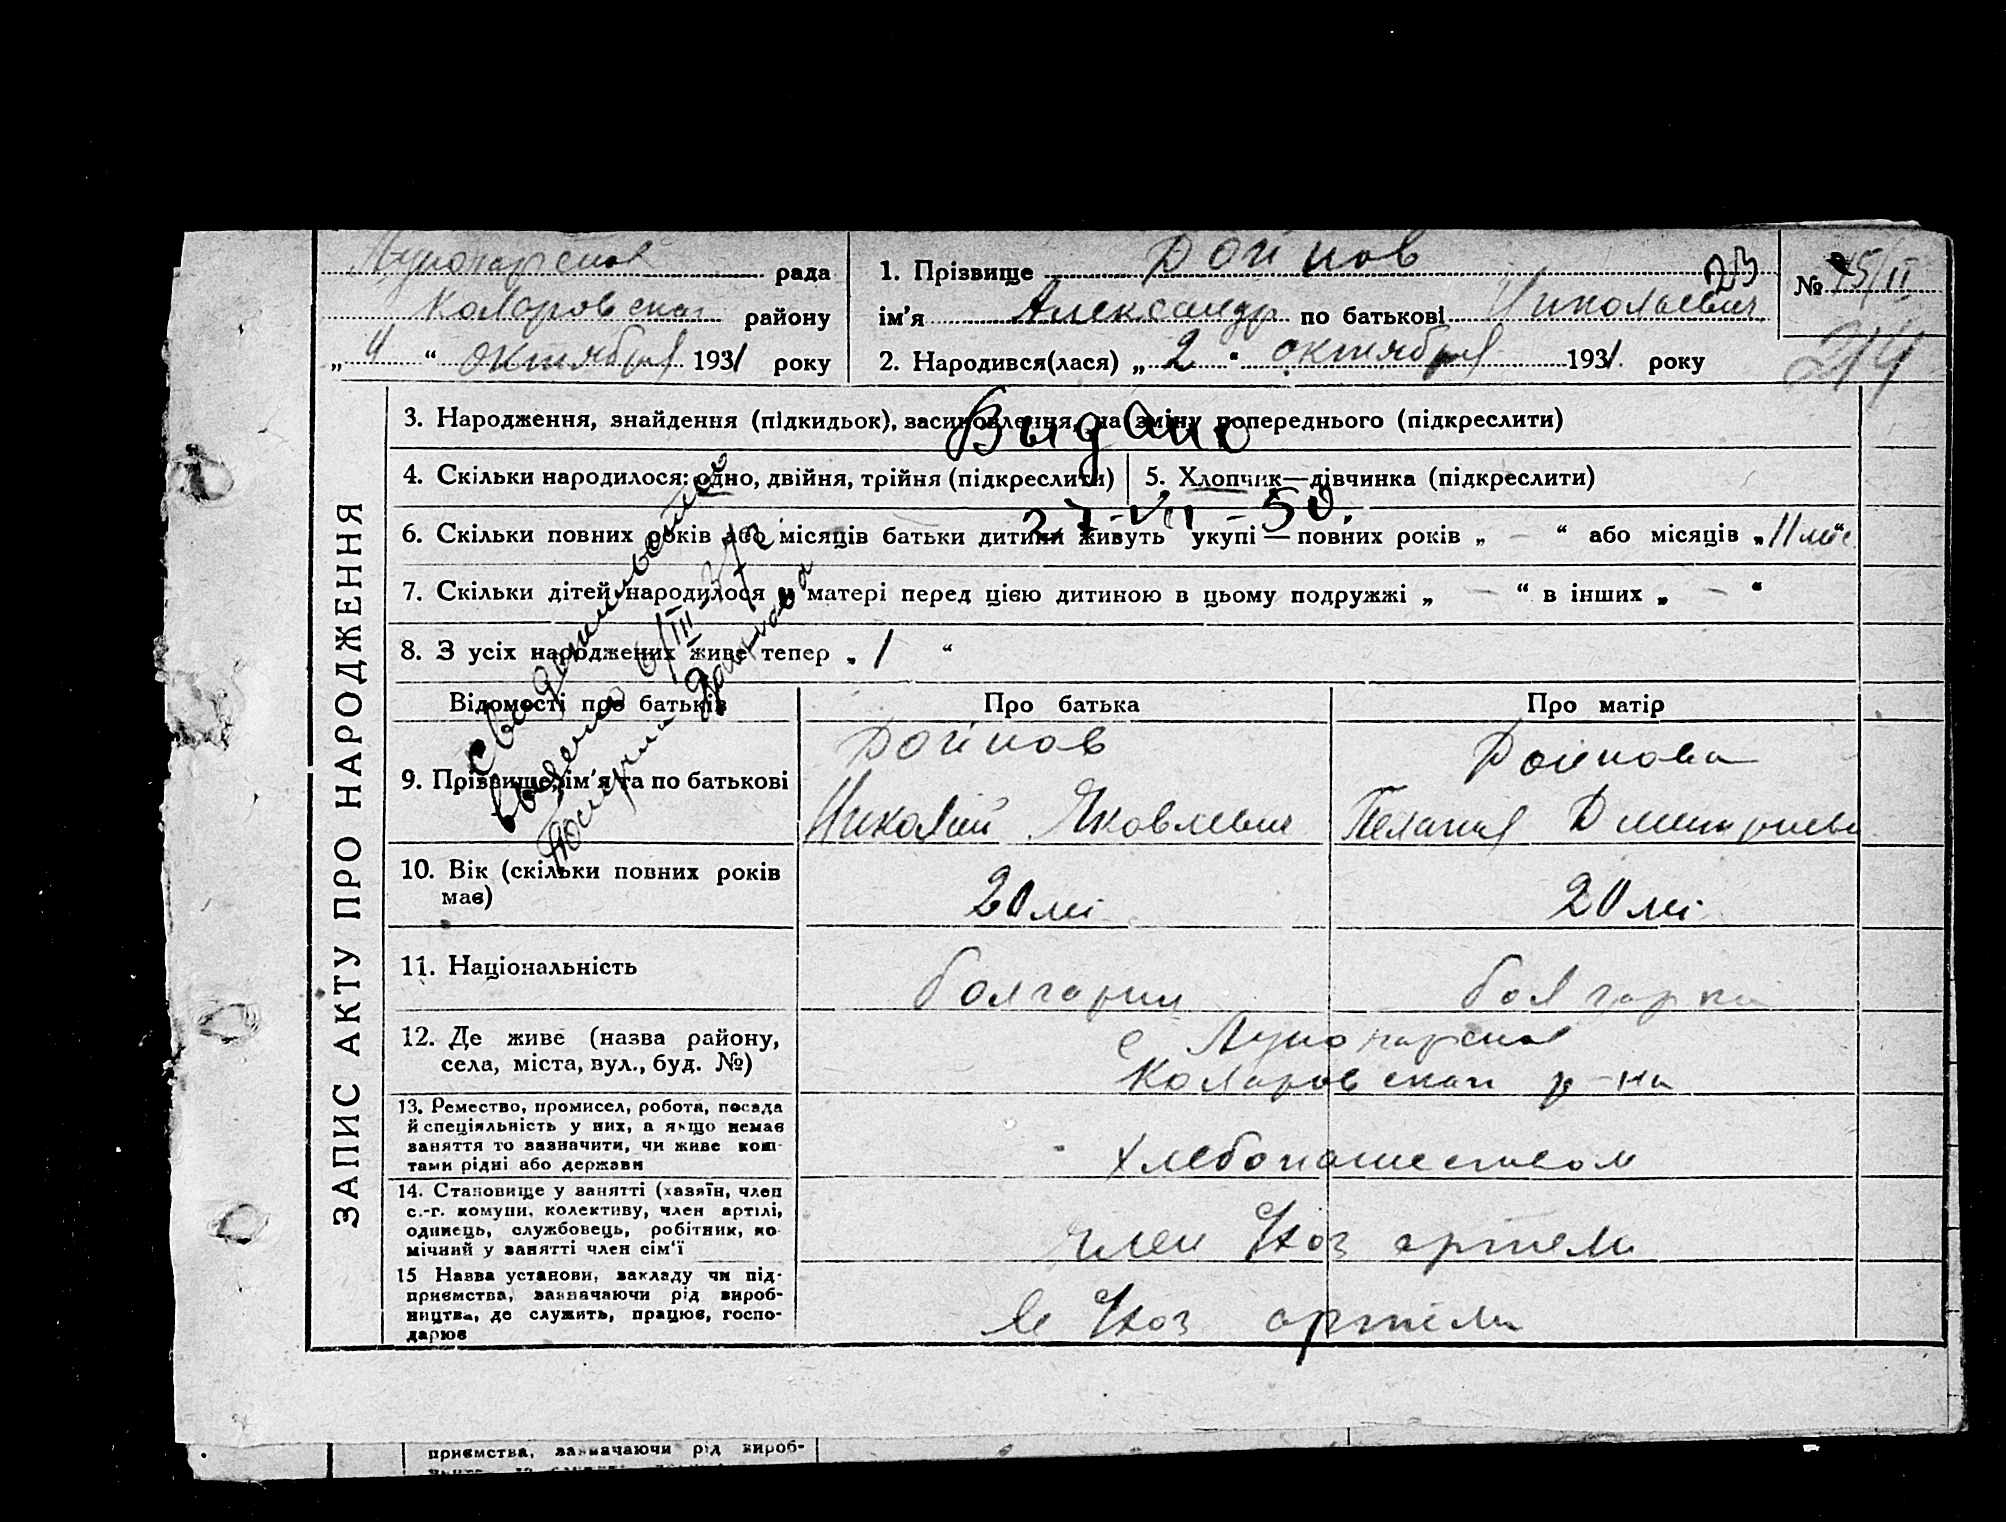 Луночарская рада
Коларовская району
„ 4 “ октября 1931 року
1. Прізвище Дойнов
ім'я Александр по батькові Николаевич
2. Народився(лася) „ 2 “ октября 1931. року
№ 75/II
214
ЗАПИС АКТУ ПРО НАРОДЖЕННЯ
3. Народження, знайдення (підкидьок), засиновлення, на зміну попереднього (підкреслити)
Выдано
4. Скільки народилося: одно, двійня, трійня (підкреслити)
5. Хлопчик—дівчинка (підкреслити)
27-VII-50.
6. Скільки повних років або місяців батьки дитини живуть укупі — повних років „ – “ або місяців „ 11 мес “
7. Скільки дітей народилося у матері перед цією дитиною в цьому подружжі „ – “ в інших „ – “
8. З усіх народжених живе тепер „ 1 “
свидетельство
выдано 6/III 37 г
Відомості про батьків
Про батька
Про матір
9. Прізвище, ім'я та по батькові
Дойнов
Николай Яковлевич
Дойнова
Пелагия Дмитриевна
10. Вік (скільки повних років
має)
20 лет
20 лет
11. Національність
болгарин
болгарка
12. Де живе (назва району,
села, міста, вул., буд. №)
с Луночарская
Коларовская р-на
13. Ремество, промисел, робота, посада
й спеціяльність у них, а якщо немає
заняття то зазначити, чи живе кош-
тами рідні або держави
хлебопашеством
14. Становище у занятті (хазяїн, член
с.-г. комуни, колективу, член артілі,
одинець, службовець, робітник, по-
мічний у занятті член сім'ї
член с/хоз артели
15 Назва установи, закладу чи під-
приємства, зазначаючи рід вироб-
ництва, де служить, працює, госпо-
дарює
в с/хоз артели
приємства, зазначаючи рід вироб-